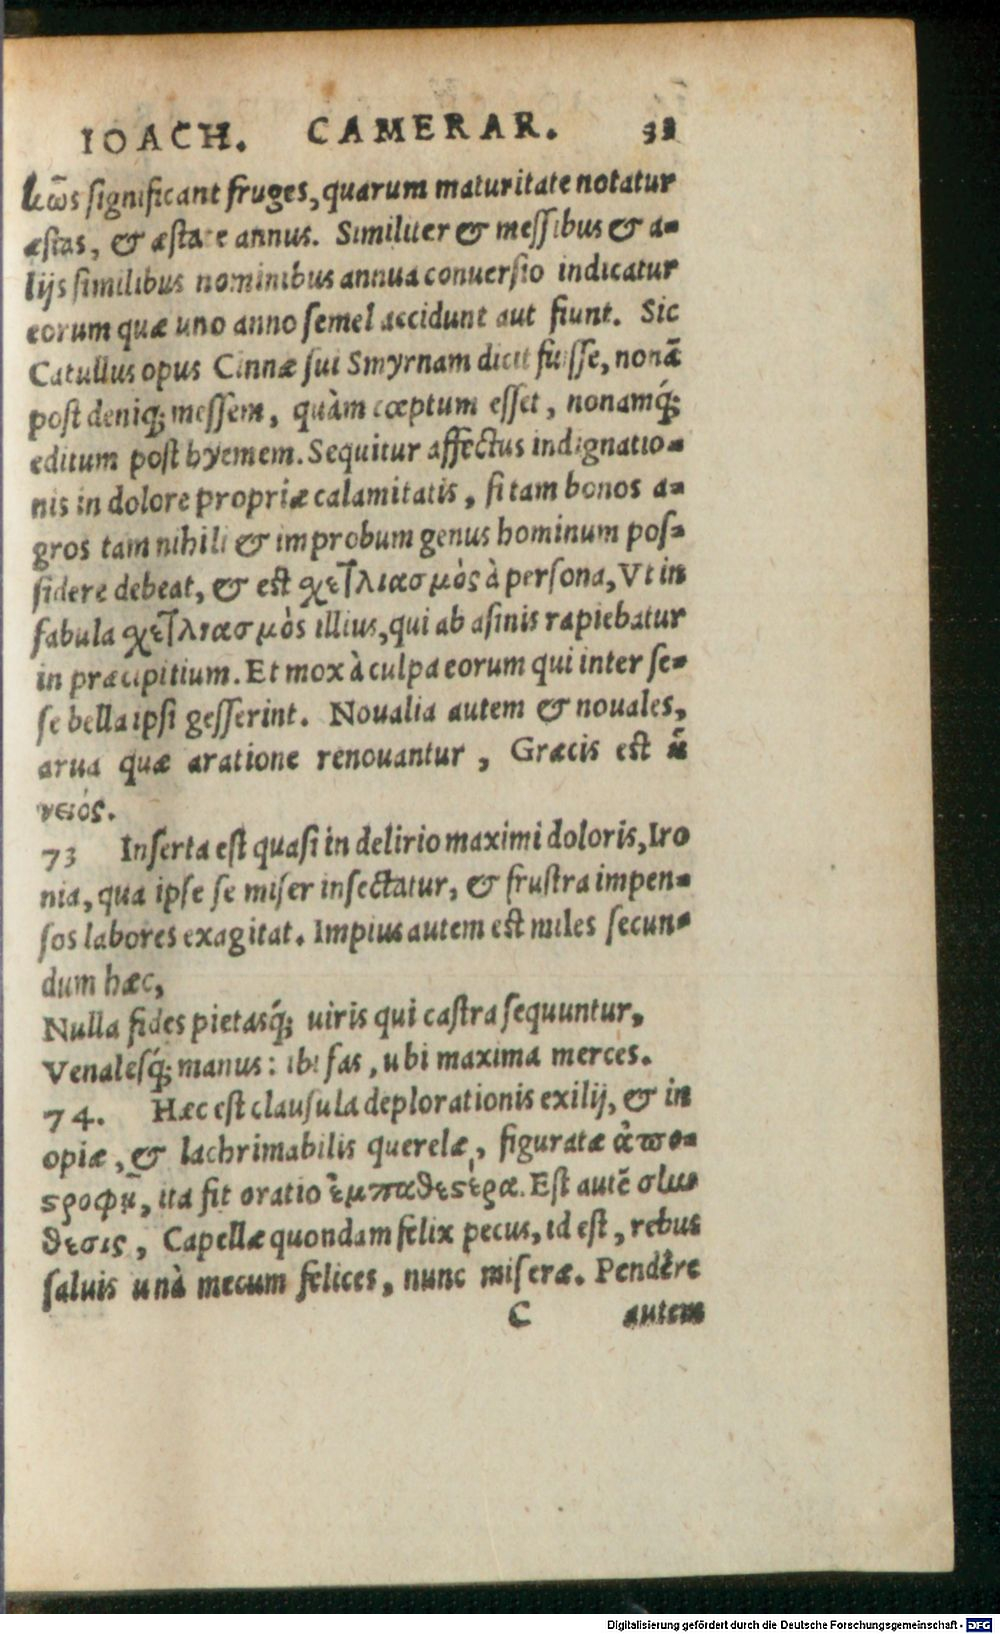 IOACH. CAMERAR. 33
κῶς significant fruges, quarum maturitate notatur
æstas, & æstate annus. Similiter & messibus & a-
lijs similibus nominibus annua conuersio indicatur
eorum quæ uno anno semel accidunt aut fiunt. Sic
Catullus opus Cinnæ sui Smyrnam dicit fuisse, nonã
post deniq́; messem, quàm cœptum esset, nonamq́;
editum post hyemem. Sequitur affectus indignatio-
nis in dolore propriæ calamitatis, si tam bonos a-
gros tam nihili & improbum genus hominum pos-
sidere debeat, & est χετλιασμὸς à persona, Vt in
fabula χετλιασμὸς illius, qui ab asinis rapiebatur
in præcipitium. Et mox à culpa eorum qui inter se-
se bella ipsi gesserint. Noualia autem & nouales,
arua quæ aratione renouantur, Græcis est ἡ
νειός.
73 Inserta est quasi in delirio maximi doloris, Iro
nia, qua ipse se miser insectatur, & frustra impen-
sos labores exagitat. Impius autem est miles secun-
dum hæc,
Nulla fides pietasq́; uiris qui castra sequuntur,
Venalesq́; manus: ibi fas, ubi maxima merces.
74. Hæc est clausula deplorationis exilij, & in
opiæ, & lachrimabilis querelæ, figuratæ ἀπο-
ϛροφῇ, ita fit oratio ἐμπαθεϛέρα. Est autẽ σύν
θεσις, Capellæ quondam felix pecus, id est, rebus
saluis unà mecum felices, nunc miseræ. Pendêre
C autem
Digitalisierung gefördert durch die Deutsche Forschungsgemeinschaft - DFG